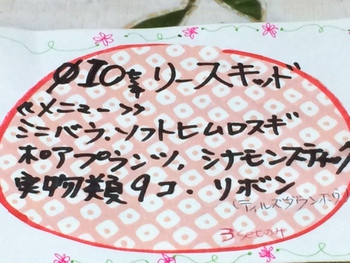 φ10㌢ リースキッド
≪メニュー≫
ミニバラ、ソフトヒムロスギ
ポアプランツ、シナモンスティック
実物類9コ. リボン
3setのみ